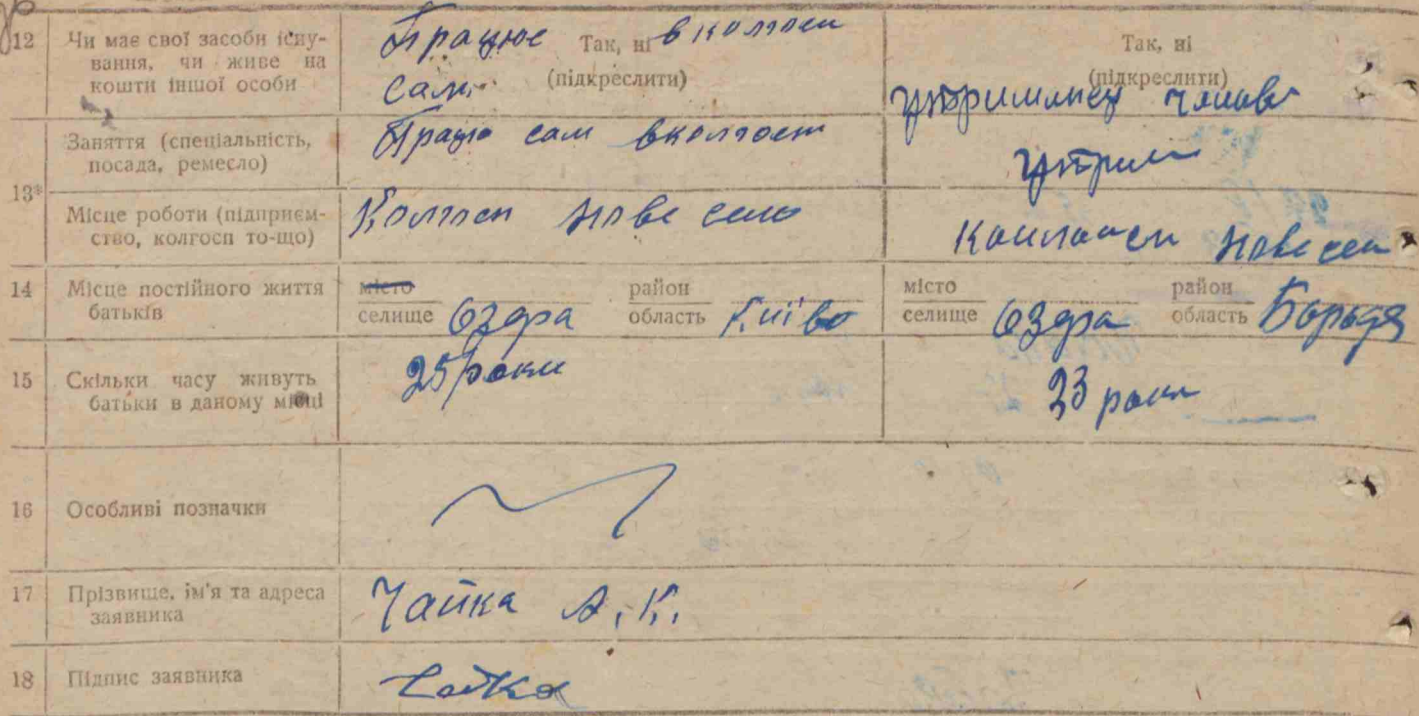 12 Чи має свої засоби існу-вання, чи живе на кошти іншої особи
Працює Так, ні в колгосп
сам (підкреслити)
Так, ні
(підкреслити)
Заняття (спеціальність, посада, ремесло)
Працю сам в колгосп
утрим
13* Місце роботи (підприєм-ство, колгосп то-що)
Колгосп нове село
нове сел
14 Місце постійного життя батьків
місто район
селище Оздра область Київо
місто район
селище Оздра область Бородя
15 Скільки часу живуть батьки в даному місці
25 роки
23 роки
16 Особливі позначки
17 Прізвище, ім'я та адреса заявника
Чайка А. К.
18 Підпис заявника
Чайка